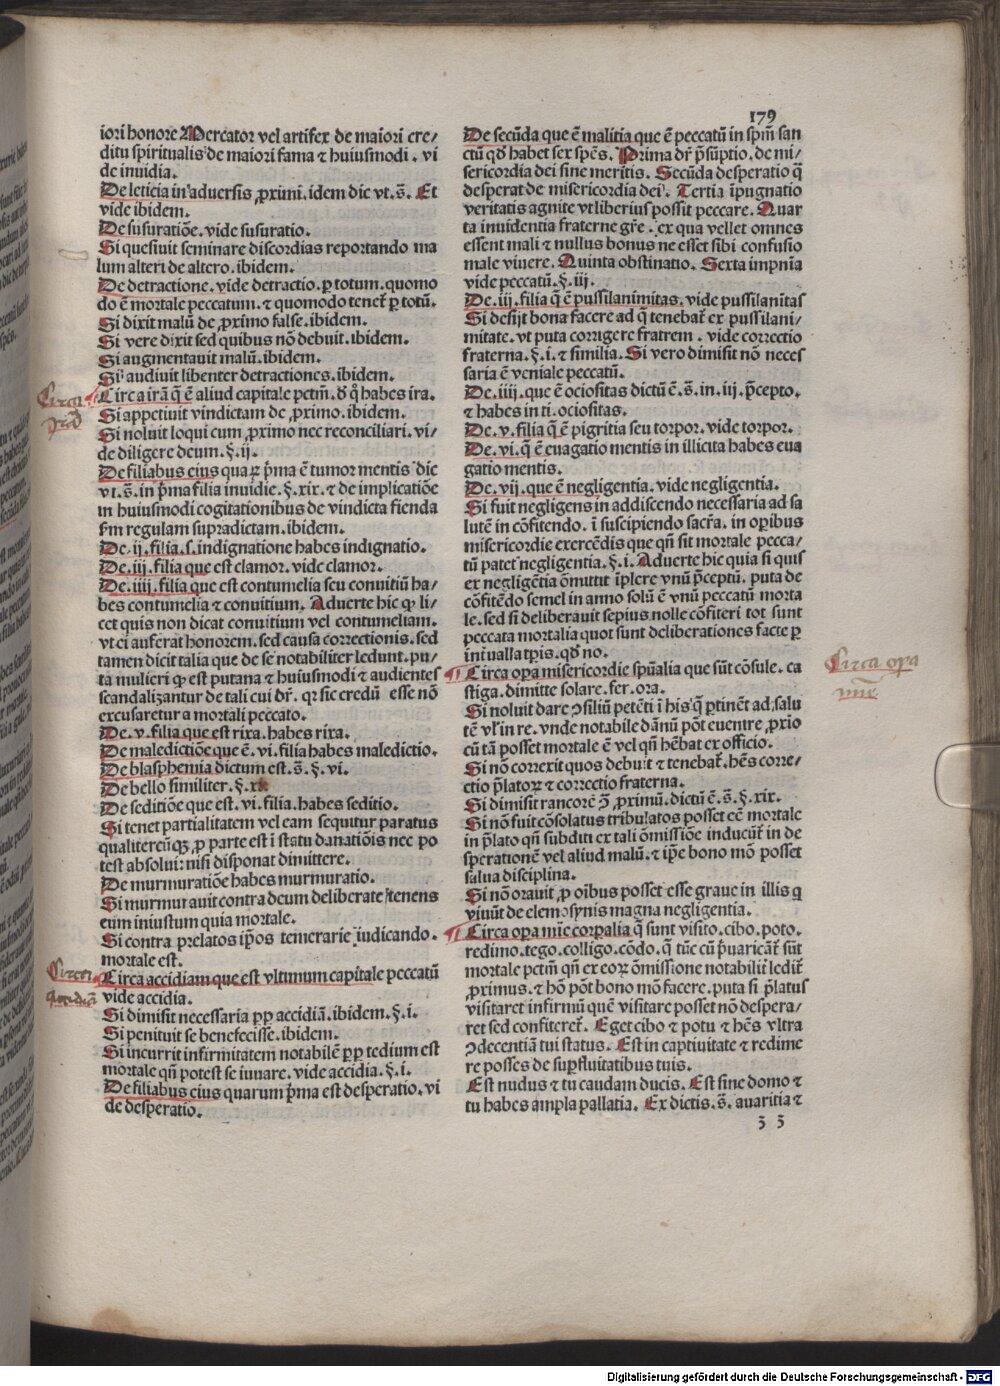 179
iori honore Mercator vel artifex de maiori cre/
ditu spiritualis de maiori fama ⁊ huiusmodi . vi
de inuidia.
De leticia in aduersis ꝓximi. idem dic vt. s̄. Et
vide ibidem.
De susuratiōe. vide susuratio.
Si quesiuit seminare discordias reportando ma
lum alteri de altero. ibidem.
De detractione. vide detractio. ꝑ totum. quomo
do ē mortale peccatum. ⁊ quomodo tenet᷑ ꝑ totū.
Si dixit malū de ꝓximo false. ibidem.
Si vere dixit sed quibus nō debuit. ibidem.
Si augmentauit malū. ibidem.
Si audiuit libenter detractiones. ibidem.
Circa irā q̄ ē aliud capitale pctm̄. ꝺ̄ q̊ habes ira.
Si appetiuit vindictam de ꝓximo. ibidem.
Si noluit loqui cum ꝓximo nec reconciliari. vi/
de diligere deum. §. ij.
De filiabus eius quaꝝ p̄ma ē tumor mentis dic
vt. s̄. in p̄ma filia inuidie. §. xix. ⁊ de implicatiōe
in huiusmodi cogitationibus de vindicta fienda
fm regulam supradictam. ibidem.
De. ij. filia. s. indignatione habes indignatio.
De. iij. filia que est clamor. vide clamor.
De. iiij. filia que est contumelia seu conuitiū ha/
bes contumelia ⁊ conuitium. Aduerte hic ꝙ li/
cet quis non dicat conuitium vel contumeliam.
vt ei auferat honorem. sed causa correctionis. sed
tamen dicit talia que de se notabiliter ledunt. pu/
ta mulieri ꝙ est putana ⁊ huiusmodi ⁊ audientes
scandalizantur de tali cui dr̄. qr sic credū esse nō
excusaretur a mortali peccato.
De. v. filia que est rixa. habes rixa.
De maledictiōe que ē. vi. filia habes maledictio.
De blasphemia dictum est. s̄. §. vi.
De bello similiter. §. x
De seditiōe que est. vi. filia. habes seditio.
Si tenet partialitatem vel eam sequitur paratus
qualitercūqꝫ ꝓ parte est ī statu danatiōis nec po
test absolui: nisi disponat dimittere.
De murmuratiōe habes murmuratio.
Si murmurauit contra deum deliberate tenens
eum iniustum quia mortale.
Si contra prelatos ip̄os temerarie iudicando.
mortale est.
Circa accidiam que est vltimum capitale peccatū
vide accidia.
Si dimisit necessaria ꝓp accidiā. ibidem. §. i.
Si penituit se benefecisse. ibidem.
Si incurrit infirmitatem notabilē ꝓp tedium est
mortale qn̄ potest se iuuare. vide accidia. §. i.
De filiabus eius quarum p̄ma est desperatio. vi
de desperatio.
De secūda que ē malitia que ē peccatū in spm̄ san
ctū qd̄ habet sex spēs. Prima dr̄ p̄sūptio. de mi/
sericordia dei sine meritis. Secūda desperatio q̄
desperat de misericordia dei. Tertia īpugnatio
veritatis agnite vt liberius possit peccare. Quar
ta inuidentia fraterne gr̄e. ex qua vellet omnes
essent mali ⁊ nullus bonus ne esset sibi confusio
male viuere. Quinta obstinatio. Sexta impnīa
vide peccatū. §. iij.
De. iij. filia q̄ ē pussilanimitas. vide pussilanītas
Si desijt bona facere ad q̄ tenebat᷑ ex pussilani/
mitate. vt puta corrigere fratrem. vide correctio
fraterna. §. i. ⁊ similia. Si vero dimisit nō neces
saria ē veniale peccatū.
De. iiij. que ē ociositas dictū ē. s̄. in. iij. p̄cepto.
⁊ habes in ti. ociositas.
De. v. filia q̄ ē pigritia seu torpor. vide torpor.
De. vi. q̄ ē euagatio mentis in illicita habes eua
gatio mentis.
De. vij. que ē negligentia. vide negligentia.
Si fuit negligens in addiscendo necessaria ad sa
lutē in cōfitendo. ī suscipiendo sacr̄a. in oꝑibus
misericordie exercēdis que qn̄ sit mortale pecca/
tū patet negligentia. §. i. Aduerte hic quia si quis
ex negligētia ōmittit īplere vnū p̄ceptū. puta de
cōfitēdo semel in anno solū ē vnū peccatū morta
le. sed si deliberauit sepius nolle cōfiteri tot sunt
peccata mortalia quot sunt deliberationes facte ꝑ
int̄ualla tꝑis. qd̄ no.
Circa oꝑa misericordie spūalia que sūt cōsule. ca
stiga. dimitte solare. fer. ora.
Si noluit dare ꝯsiliū petēti ī his q̄ ꝑtinēt ad salu
tē vl̓ in re. vnde notabile dānū pōt euenire ꝓxio
cū tā posset mortale ē vel qn̄ hēbat ex officio.
Si nō correxit quos debuit ⁊ tenebat᷑. hēs corre/
ctio p̄latoꝝ ⁊ correctio fraterna.
Si dimisit rancorē ꝯ̄ ꝓximū. dictū ē. s̄. §. xix.
Si nō fuit cōsolatus tribulatos posset eē mortale
in p̄lato qn̄ subditi ex tali ōmissiōe inducūt᷑ in de
sperationē vel aliud malū. ⁊ ip̄e bono mō posset
salua disciplina.
Si nō orauit ꝓ oībus posset esse graue in illis q̄
viuūt de elemosynis magna negligentia.
Circa oꝑa mīe corꝑalia q̄ sunt visito. cibo. poto.
redimo. tego. colligo. cōdo. q̄ tūc cū p̄uaricāt᷑ sūt
mortale pctm̄ qn̄ ex eoꝝ ōmissione notabilit᷑ ledit᷑
ꝓximus. ⁊ hō pōt bono mō facere. puta si p̄latus
visitaret infirmū quē visitare posset nō despera/
ret sed confiteret᷑. Eget cibo ⁊ potu ⁊ hēs vltra
ꝯdecentiā tui status. Est in captiuitate ⁊ redime
re posses de suꝑfluitatibus tuis.
Est nudus ⁊ tu caudam ducis. Est sine domo ⁊
tu habes ampla pallatia. Ex dictis. s̄. auaritia ⁊
ꝫ ꝫ
Circa
Circa
Circa opa
mie
Digitalisierung gefördert durch die Deutsche Forschungsgemeinschaft - DFG